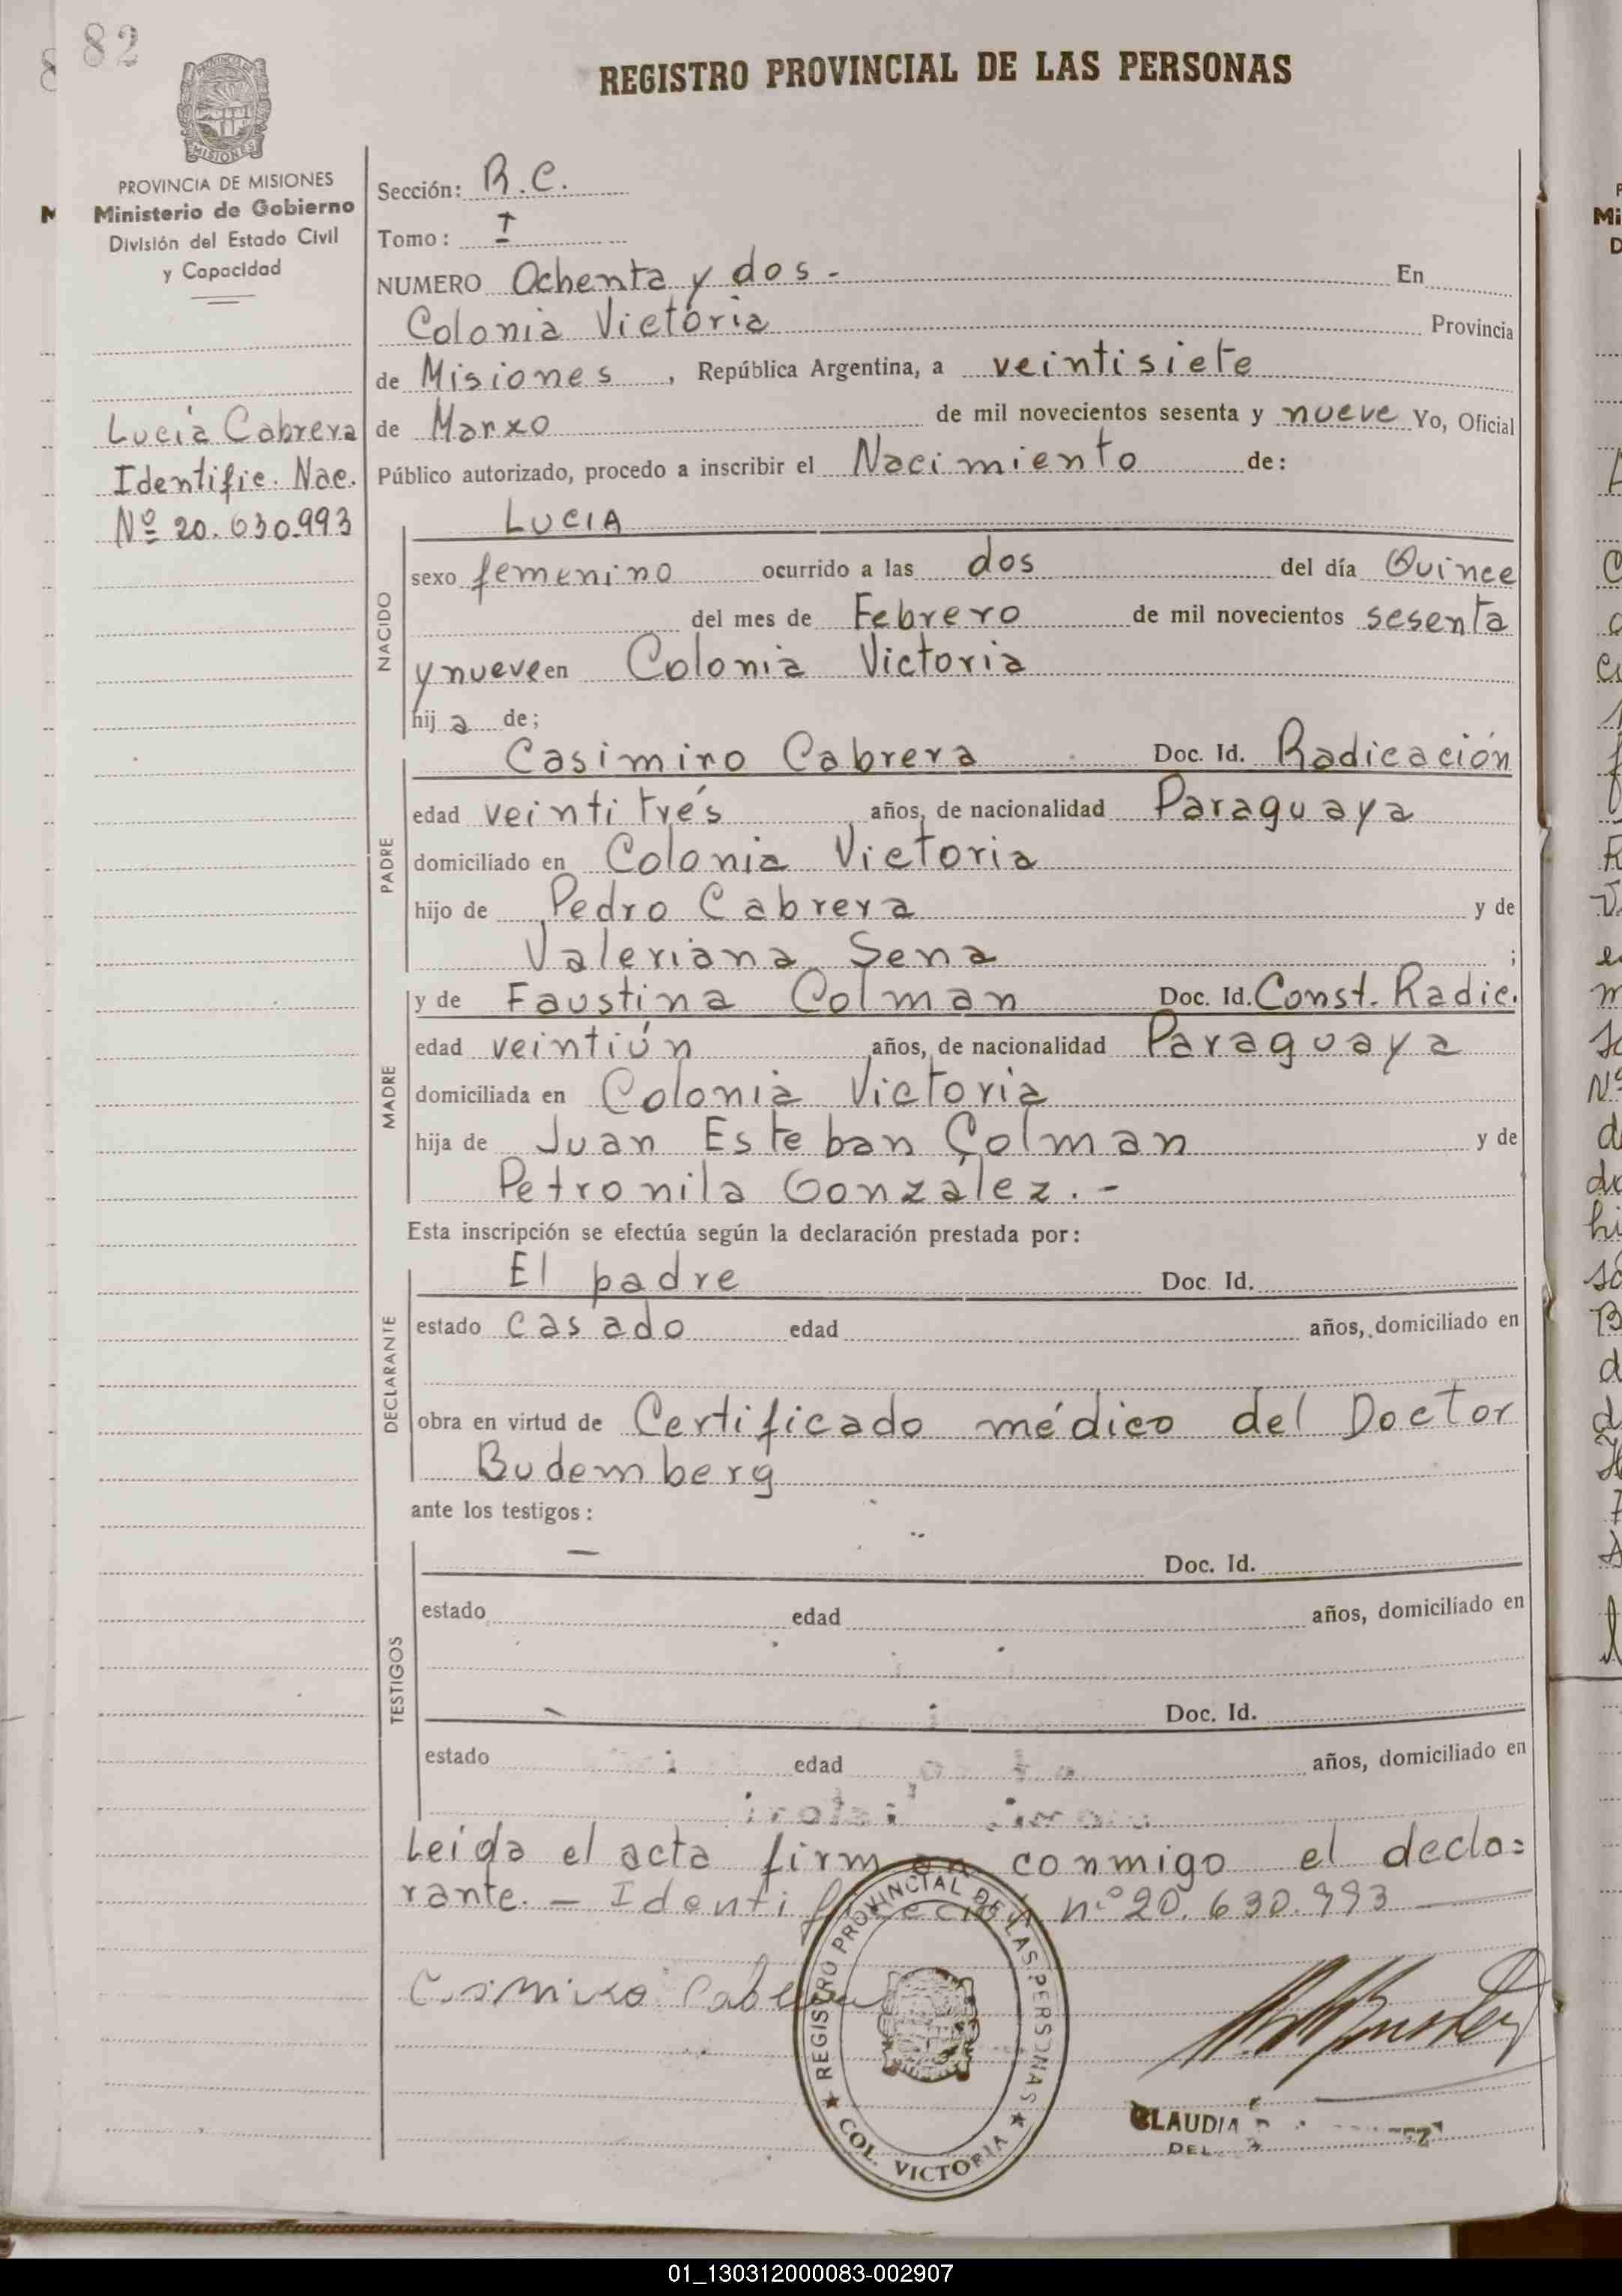 82
REGISTRO PROVINCIAL DE LAS PERSONAS
MISIONES
PROVINCIA DE MISIONES
Ministerio de Gobierno
División del Estado Civil
y Capacidad
Lucía Cabrera
Identific. Nac.
Nº 20.630.993
Sección: R.C.
Tomo: I
NUMERO Ochenta y dos.- En
Colonia Victoria Provincia
de Misiones, República Argentina, a veintisiete
de Marzo de mil novecientos sesenta y nueve Yo, Oficial
Público autorizado, procedo a inscribir el Nacimiento de:
NACIDO
LUCIA
sexo femenino ocurrido a las dos del día Quince
del mes de Febrero de mil novecientos sesenta
y nueve en Colonia Victoria
hija de;
PADRE
Casimiro Cabrera Doc. Id. Radicación
edad veintitrés años, de nacionalidad Paraguaya
domiciliado en Colonia Victoria
hijo de Pedro Cabrera y de
Valeriana Sena ;
MADRE
y de Faustina Colman Doc. Id. Const. Radic.
edad veintiún años, de nacionalidad Paraguaya
domiciliada en Colonia Victoria
hija de Juan Esteban Colman y de
Petronila Gonzàlez.-
Esta inscripción se efectúa según la declaración prestada por:
DECLARANTE
El padre Doc. Id.
estado casado edad años, domiciliado en
obra en virtud de Certificado médico del Doctor
Budemberg
ante los testigos:
TESTIGOS
— Doc. Id.
estado edad años, domiciliado en
Doc. Id.
estado edad años, domiciliado en
Leida el acta firman conmigo el decla=
rante.— Identificación nº 20.630.993
Casimiro Cabrera
REGISTRO PROVINCIAL DE LAS PERSONAS
★ COL. VICTORIA ★
CLAUDIA
DEL
01_130312000083-002907